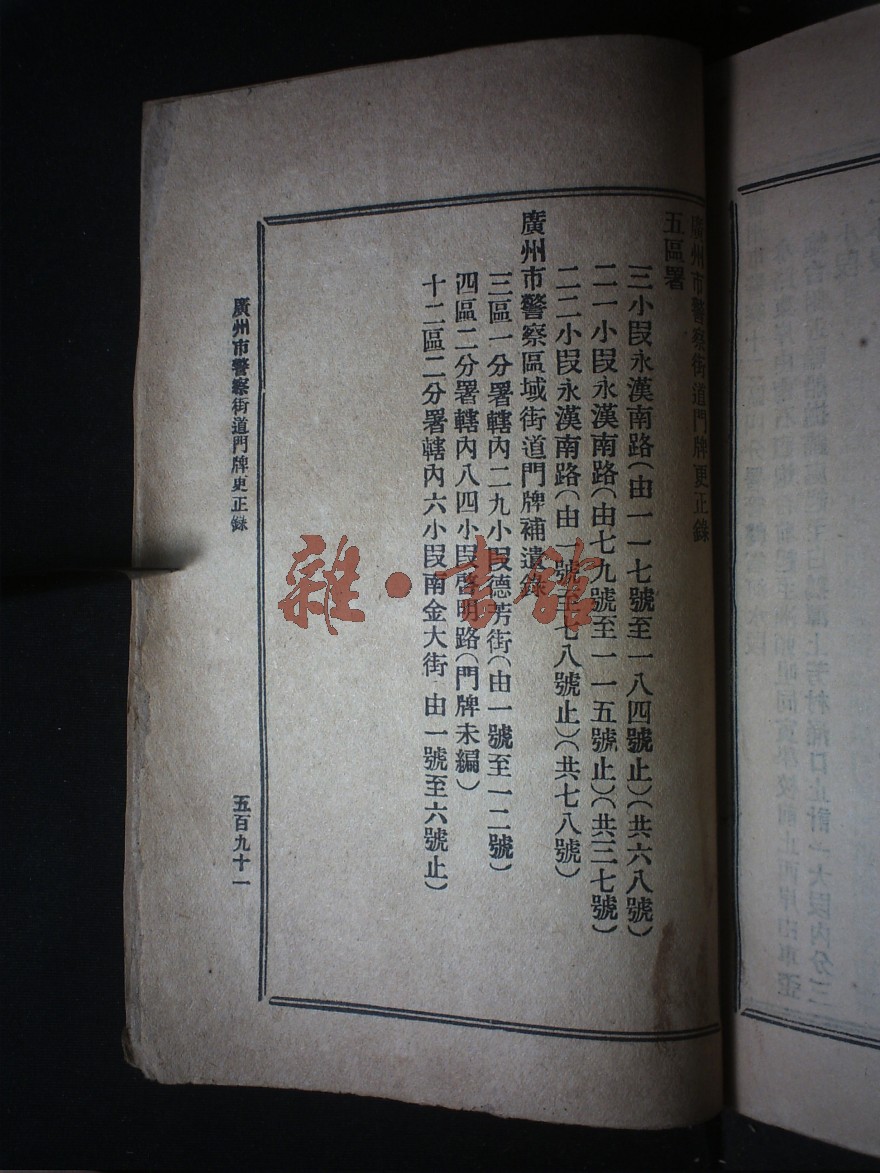 廣州市警察街道門牌更正錄
五區署
三小段永漢南路(由一一七號至一八四號止)(共六八號)
二一小段永漢南路(由七九號至一一五號止)(共三七號)
二二小段永漢南路(由一號至七八號止)(共七八號)
廣州市警察區域街道門牌補遺錄
三區一分署轄內二九小段德芳街(由一號至一二號)
四區二分署轄內八四小段啓明路(門牌未編)
十二區二分署轄內六小段南金大街 由一號至六號止)
廣州市警察街道門牌更正錄
五百九十一
雜·書館